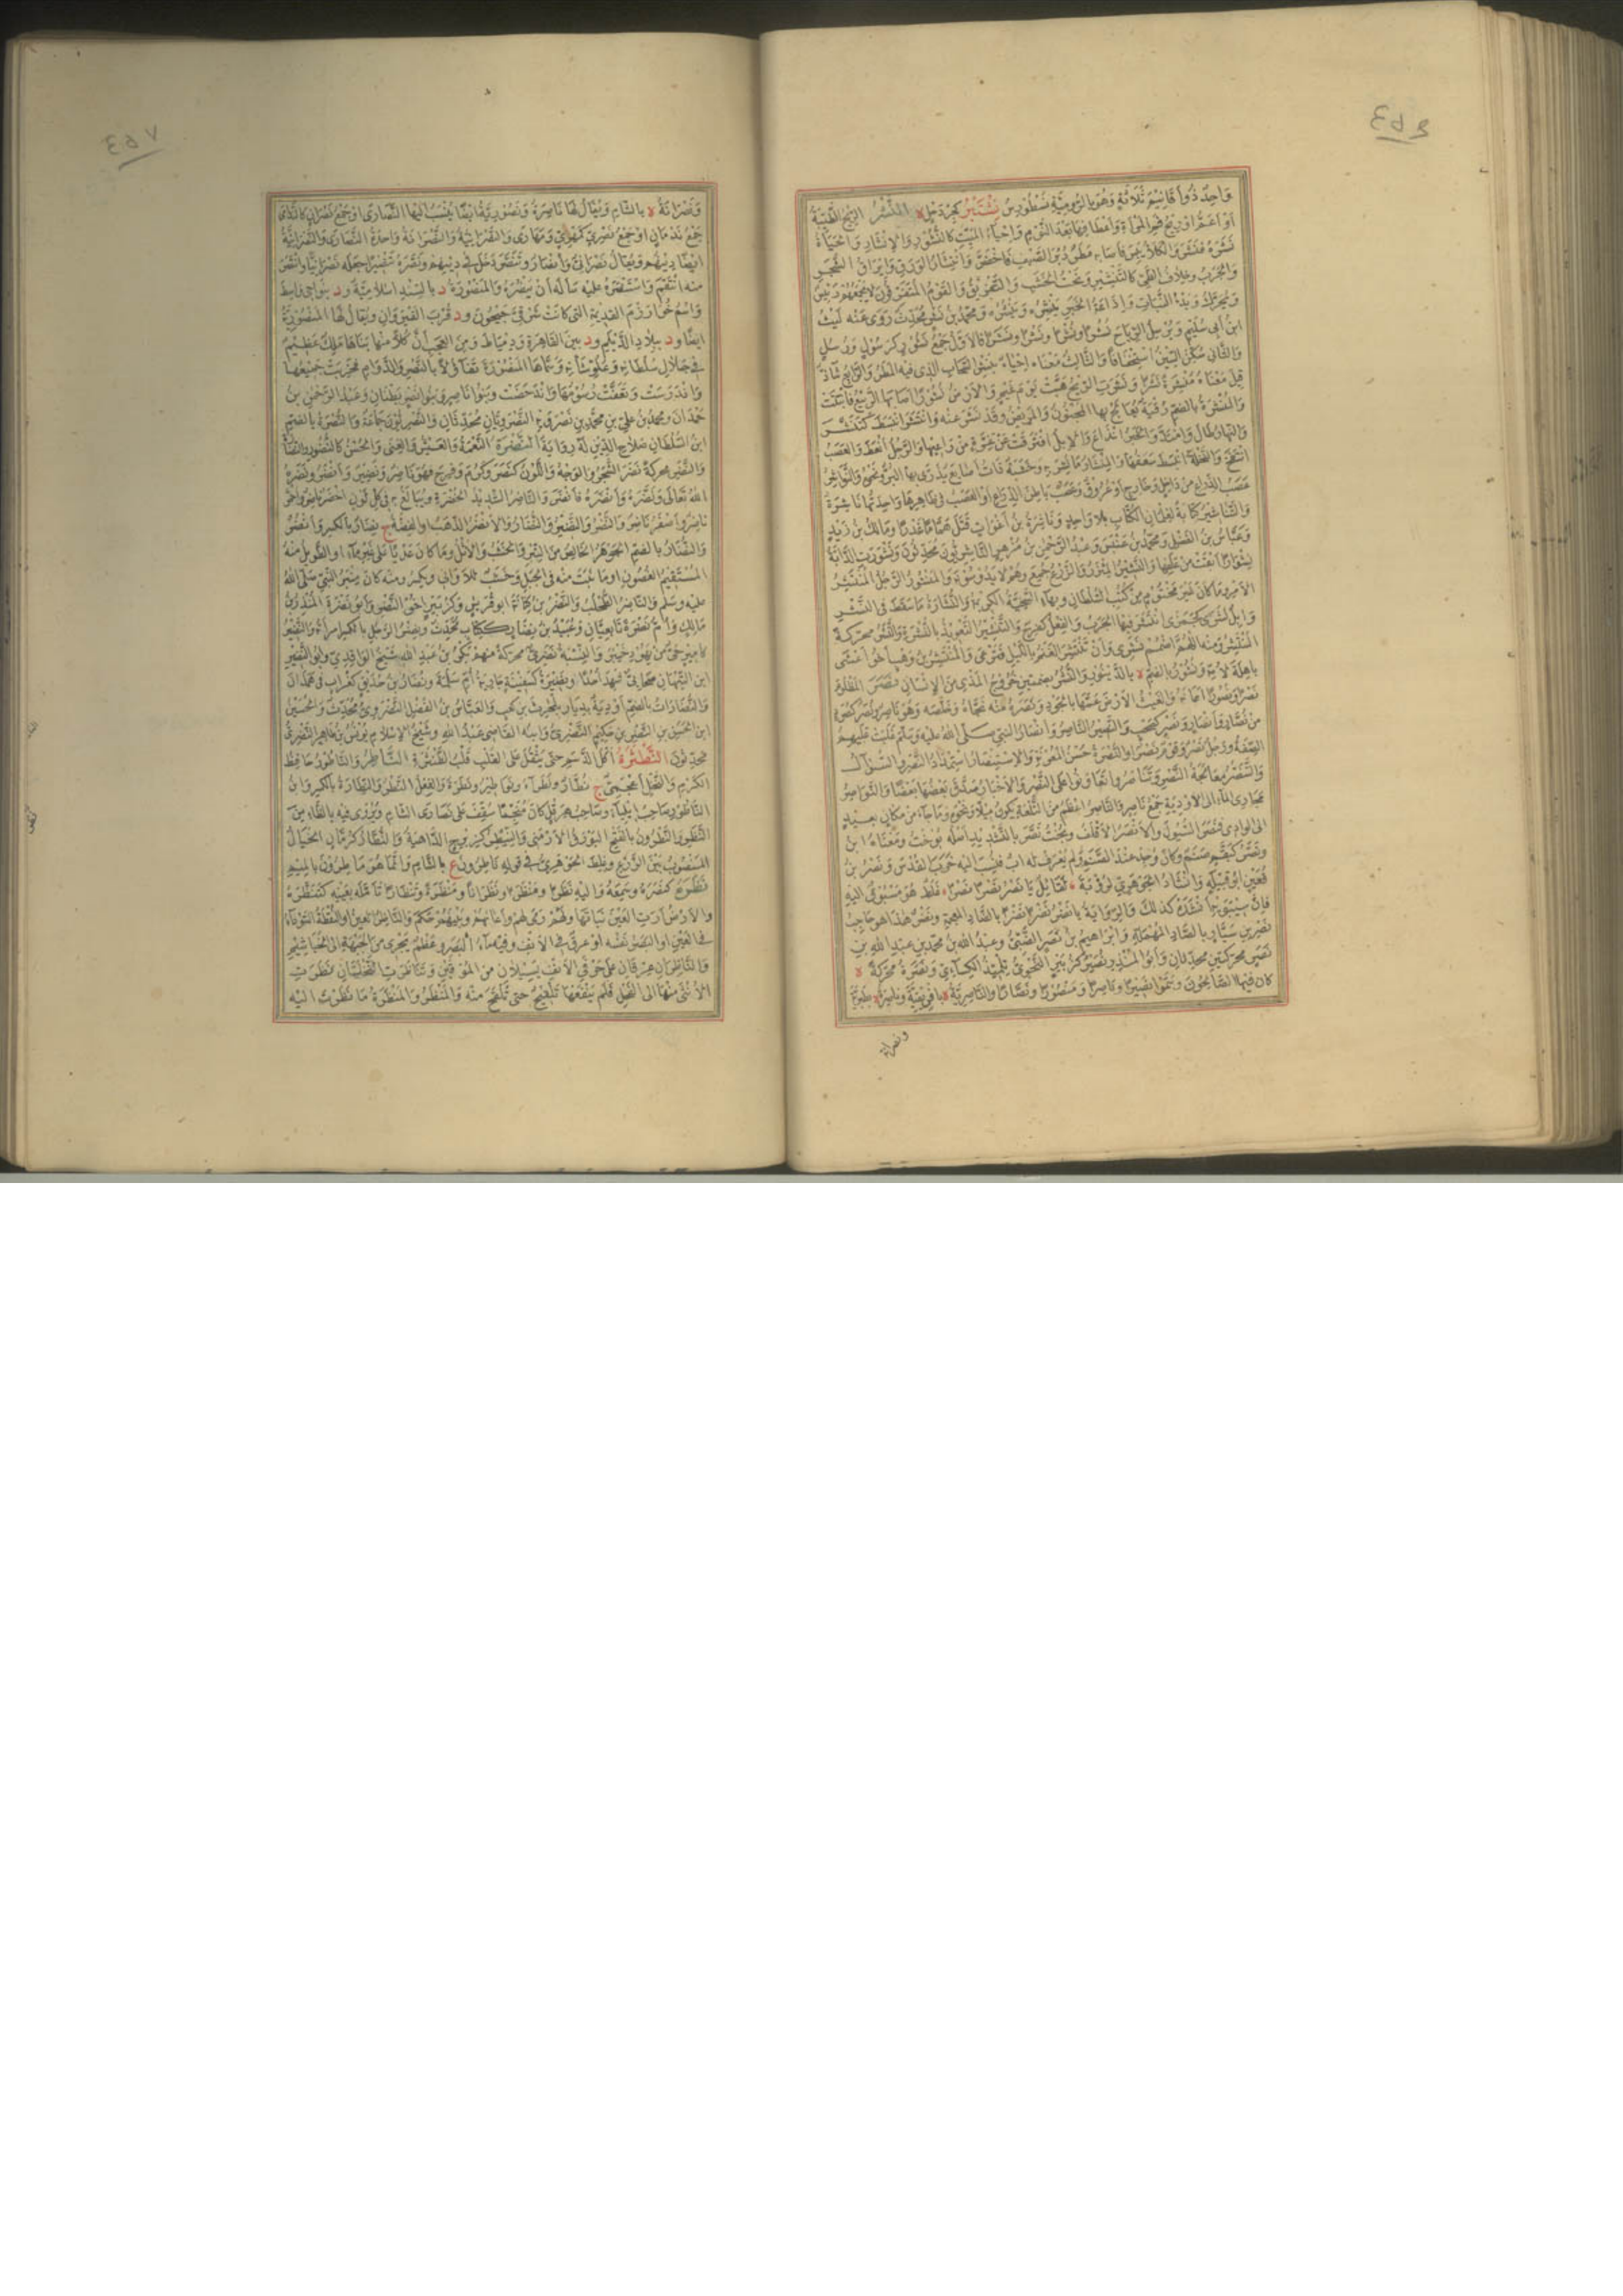 واحدٌ ذُو أقانيمَ ثلاثةٍ وهو بالرومية نَسْطُورِسْ نِشْتَبْرُ كجِرْدَحْلٍ لا النَّشْرُ الريحُ الطيبةُ
أو أعمُّ أو ريحُ فمِ المرأةِ وأعطافِها بعد النومِ وإحياءُ الميتِ كالنُّشورِ والإنشارِ والحياةُ
نَشَرَهُ فنَشَرَ والكلأُ يبسَ فأصابه مطرٌ دُبُرَ الصيفِ فاخضرَّ وانتشارُ الورقِ وإيراقُ الشجرِ
والجربُ وخلافُ الطيِّ كالتنشيرِ ونحتُ الخشبِ والتفريقُ والقومُ المتفرقون لا يجمعهم رئيسٌ
ويُحرَّكُ وبدءُ النباتِ وإذاعةُ الخبرِ يَنْشُرُه ويَنْشِرُه ومحمدُ بنُ نَشْرٍ محدثٌ روى عنه ليثُ
ابنُ أبي سليمٍ ويرسلُ الرياحَ نُشُرًا ونُشْرًا ونَشْرًا ونَشَرًا فالأولُ جمعُ نَشورٍ كرسولٍ ورسلٍ
والثاني سكن الشين استخفافًا والثالث معناه إحياءً بنشر السحاب الذي فيه المطر والرابع شاذٌ
قيل معناه منتشرة نشرًا ونشرت الريح هبت يوم غيمٍ والأرض نشورًا أصابها الربيع فأنبتت
والنشرة بالضم رقية يعالج بها المجنون والمريض وقد نشر عنه وانتشر انبسط كتنشر
والنهار طال وامتد والخبر انذاع والإبل افترقت عن غرة من راعيها والرجل أنعظ والعصب
انتفخ والنخلة انبسط سعفها والمنشار ما نشر به وخشبة ذات أصابع يذرى بها البر ونحوه والنواشر
عصب الذراع من داخل وخارج أو عروق وعصب باطن الذراع أو العصب في ظاهرها واحدتها ناشرة
والتناشير كتابة لغلمان الكتاب بلا واحد وناشرة بن أغواث قتل همامًا غدرًا ومالك بن زيد
وعباس بن الفضل ومحمد بن عنبس وعبد الرحمن بن مزهر الناشريون محدثون ونشورت الدابة
نشوارًا أبقت من علفها والنشير المئزر والزرع جمع وهم لا يدوسونه والمنشور الرجل المنتشر
الأمر وما كان غير مختوم من كتب السلطان وبهاء السجية الكريمة والنشارة ما سقط في النشر
وإبل نشرى كجمزى انتشر فيها الجرب والفعل كفرح والتنشير التعويذ بالنشرة والنشر محركة
المنتشر ومنه اللهم اضمم نشري وأن تنتشر الغنم بالليل فترعى والمنتشر بن وهب أخو أعشى
باهلة لأمه ونشور بالضم لا بالدينور والنشر بضمتين خروج المذي من الإنسان نصر المظلوم
نصرًا ونصورًا أعانه والغيث الأرض عمها بالجود ونصره منه نجاه وخلصه وهو ناصر ونصر كصرد
من نصار وأنصار ونصر كصحب والنصير الناصر وأنصار النبي صلى الله عليه وسلم غلبت عليهم
الصفة ورجل نصر وقوم نصر أو النصرة حسن المعونة والاستنصار استمداد النصر والسؤال
والتنصر معالجة النصر وتناصروا تعاونوا على النصر والأخبار صدق بعضها بعضًا والنواصر
مجاري الماء إلى الأودية جمع ناصر والناصر أعظم من التلعة يكون ميلًا ونحوه وما جاء من مكان بعيد
إلى الوادي فنصر السيول والأنصر الأقلف وبخت نصر بالتشديد أصله بوخت ومعناه ابن
ونصر كبقم صنم وكان وجد عند الصنم ولم يعرف له أب فنسب إليه خرب القدس ونصر بن
قعين أبو قبيلة وإنشاد الجوهري لرؤبة لقائل يا نصر نصرًا نصرًا غلط هو مسبوق إليه
فإن سيبويه أنشده كذلك والرواية يا نضر نضرًا نضرًا بالضاد المعجمة ونضر هذا هو حاجب
نصر بن سيار بالصاد المهملة وإبراهيم بن نصر الضبي وعبد الله بن محمد بن عبد الله بن
نصر محركتين محدثان وأبو المنذر نصير كزبير النحوي تلميذ الكسائي ونصرة محركة لا
كان فيها الصالحون وسموا نصيرًا وناصرًا ومنصورًا ونصارًا والناصرية لا بإفريقية وناصرة لا بطبرية
ونصرانة
ونصرانة لا بالشام ويقال لها ناصرة ونصورية أيضًا ينسب إليها النصارى أو جمع نصران كالندامى
جمع ندمان أو جمع نصري كمهري ومهارى والنصرانية والنصرانة واحدة النصارى والنصرانية
أيضًا دينهم ويقال نصراني وأنصار وتنصر دخل في دينهم ونصره تنصيرًا جعله نصرانيًا وانتصر
منه انتقم واستنصره عليه سأله أن ينصره والمنصورة د بالسند إسلامية ود بنواحي واسط
واسم خوارزم القديمة التي كانت شرقي جيحون ود قرب القيروان ويقال لها المنصورية
أيضًا ود ببلاد الديلم ود بين القاهرة ودمياط ومن العجب أن كلًا منها بناها ملك عظيم
في جلال سلطانه وعلو شأنه وسماها المنصورة تفاؤلًا بالنصر والدوام فخربت جميعها
واندرست وتعفت رسومها واندحضت وبنو ناصر وبنو نصر بطنان وعبد الرحمن بن
حمدان ومحمد بن علي بن محمد بن نصرويه النصرويان محدثان والنصريون جماعة والنصرة بالضم
ابن السلطان صلاح الدين له رواية النضرة النعمة والعيش والغنى والحسن كالنضور والنضارة
والنضر محركة نضر الشجر والوجه واللون كنصر وكرم وفرح فهو ناضر ونضير وأنضر ونضره
الله تعالى ونضره وأنضره فأنضر والناضر الشديد الخضرة ويبالغ به في كل لون أخضر ناضر وأحمر
ناضر وأصفر ناضر والنضر والنضير والنضار والأنضر الذهب أو الفضة ج نضار بالكسر وأنضر
والنضار بالضم الجوهر الخالص من التبر والخشب والأثل وما كان عذيًا على غير ماء أو الطويل منه
المستقيم الغصون أو ما نبت منه في الجبل وخشب للأواني ويكسر ومنه كان منبر النبي صلى الله
عليه وسلم والناضر الطحلب والنضر بن كنانة أبو قريش وكزبير أخو النضر وأبو نضرة المنذر بن
مالك وأم نضرة تابعيان وعبيد بن نضار ككتاب محدث ونضر الرجل بالكسر امرأته والنضير
كأمير حي من يهود خيبر والنسبة نضري محركة منهم بكر بن عبد الله شيخ الواقدي وأبو النضير
ابن التيهان صحابي شهد أحدًا ونضيرة كسفينة جارية أم سلمة ونضار بن حديق كغراب في همدان
والنضارات بالضم أودية بديار بلحرث بن كعب والعباس بن الفضل النضروي محدث والحسين
ابن الحسين بن النضر بن حكيم النضري وابنه القاضي عبد الله وشيخ الإسلام يونس بن طاهر النضري
محدثون النطثرة أكل الدسم حتى يثقل على القلب قلب الطنثرة الناطر والناطور حافظ
الكرم والنخل أعجمي ج نطار ونطراء ونواطير ونطرة والفعل النطر والنطارة بالكسر وابن
الناطور صاحب إيلياء وصاحب هرقل كان منجمًا سقف على نصارى الشام ويروى فيه بالظاء من
النظر والنطرون بالفتح البورق الأرمني والنيطر كزبرج الداهية والنطار كرمان الخيال
المنصوب بين الزرع وغلط الجوهري في قوله ناطرون ع بالشام وإنما هو ماطرون بالميم
نظره كنصره وسمعه وإليه نظرًا ومنظرًا ونظرانًا ومنظرة وتنظارًا تأمله بعينه كتنظره
والأرض أرت العين نباتها ولهم رثى لهم وأعانهم وبينهم حكم والناظر العين أو النقطة السوداء
في العين أو البصر نفسه أو عرق في الأنف وفيه ماء البصر وعظم يجري من الجبهة إلى الخياشيم
والناظران عرقان على حرفي الأنف يسيلان من الموقين وتناظرت النخلتان نظرت
الأنثى منهما إلى الفحل فلم ينفعها تلقيح حتى تلقح منه والمنظر والمنظرة ما نظرت إليه